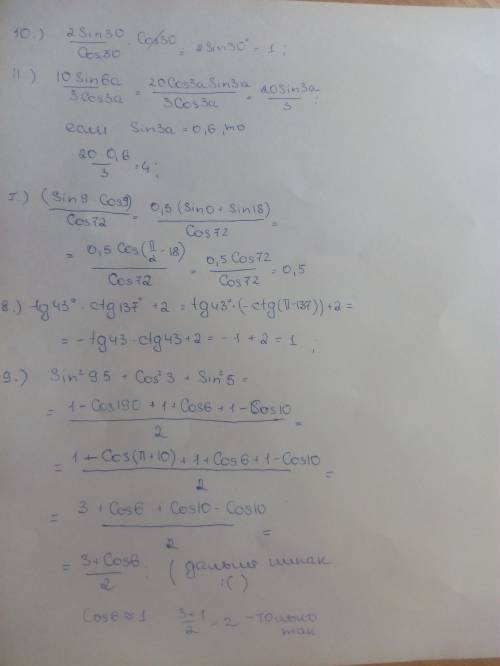 10.) 2Sin30/Cos30 · Cos30 = 2Sin30° = 1 ;
11.) 10Sin6a/3Cos3a = 20Cos3aSin3a/3Cos3a = 20Sin3a/3 ;
если Sin3a = 0,6, то
20·0,6/3 = 4 ;
7.) (Sin9·Cos9)/Cos72 = 0,5(Sin0 + Sin18)/Cos72 =
= 0,5Cos(π/2 - 18)/Cos72 = 0,5Cos72/Cos72 = 0,5
8.) tg43° · ctg137° + 2 = tg43°·(-ctg(π-137)) + 2 =
= -tg43·ctg43 + 2 = -1 + 2 = 1 ;
9.) Sin²95 + Cos²3 + Sin²5 =
= 1 - Cos190 + 1 + Cos6 + 1 - Cos10/2 =
= 1 - Cos(π+10) + 1 + Cos6 + 1 - Cos10/2 =
= 3 + Cos6 + Cos10 - Cos10/2 =
= 3 + Cos6/2 ; (дальше никак :( )
Cos6 ≈ 1 3+1/2 = 2 - только так